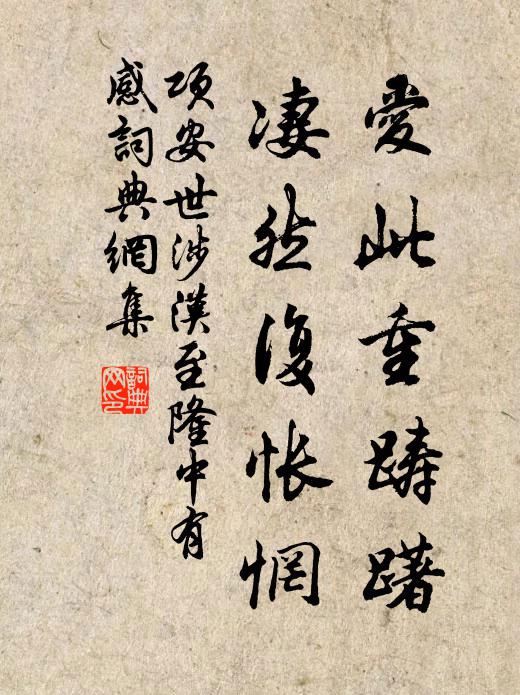 愛此重踌躇
凄然復悵惘
項安世涉漢至隆中有
感詞典網集
詞典網印